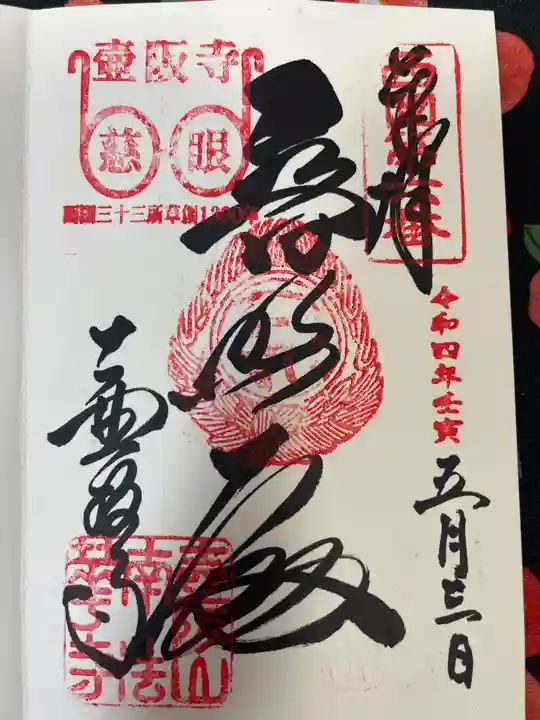 奉拝
令和四年壬寅
五月三日
普照殿
壺阪寺
慈眼
西国三十三所草創1300年
壺阪寺